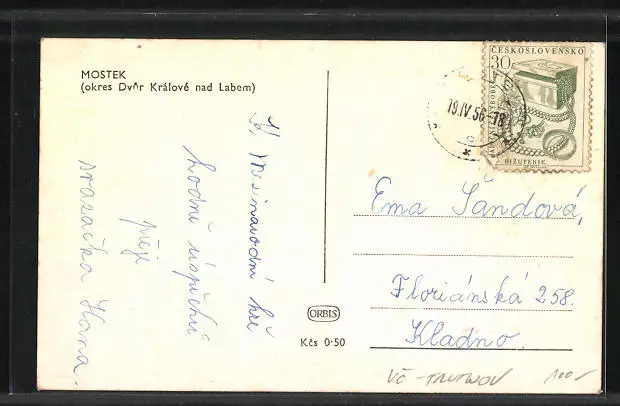 MOSTEK
(okres Dvůr Králové nad Labem)
K Mezinárodní hře
hodně úspěchů
přeje
svazačka Hana.
ČESKOSLOVENSKO
30h
BIŽUTERIE
19.IV.56-18
Ema Šandová,
Floriánská 258.
Kladno.
ORBIS
Kčs 0·50
VČ - TRUTNOV
100,-